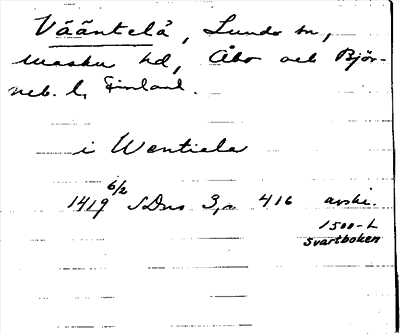 Vääntelä, Lundo sn,
Masku hd, Åbo och Björ-
neb. l, Finland.
i Wentiela
1419 6/2 SDns 3, s 416 avskr.
1500-t
Svartboken